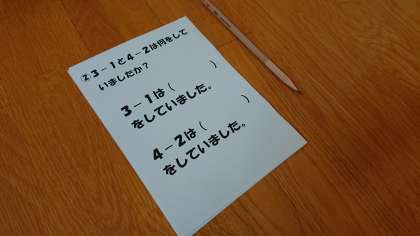 ②3－1と4－2は何をして
いましたか？
3－1は（　　　）
をしていました。
4－2は（　　　）
をしていました。